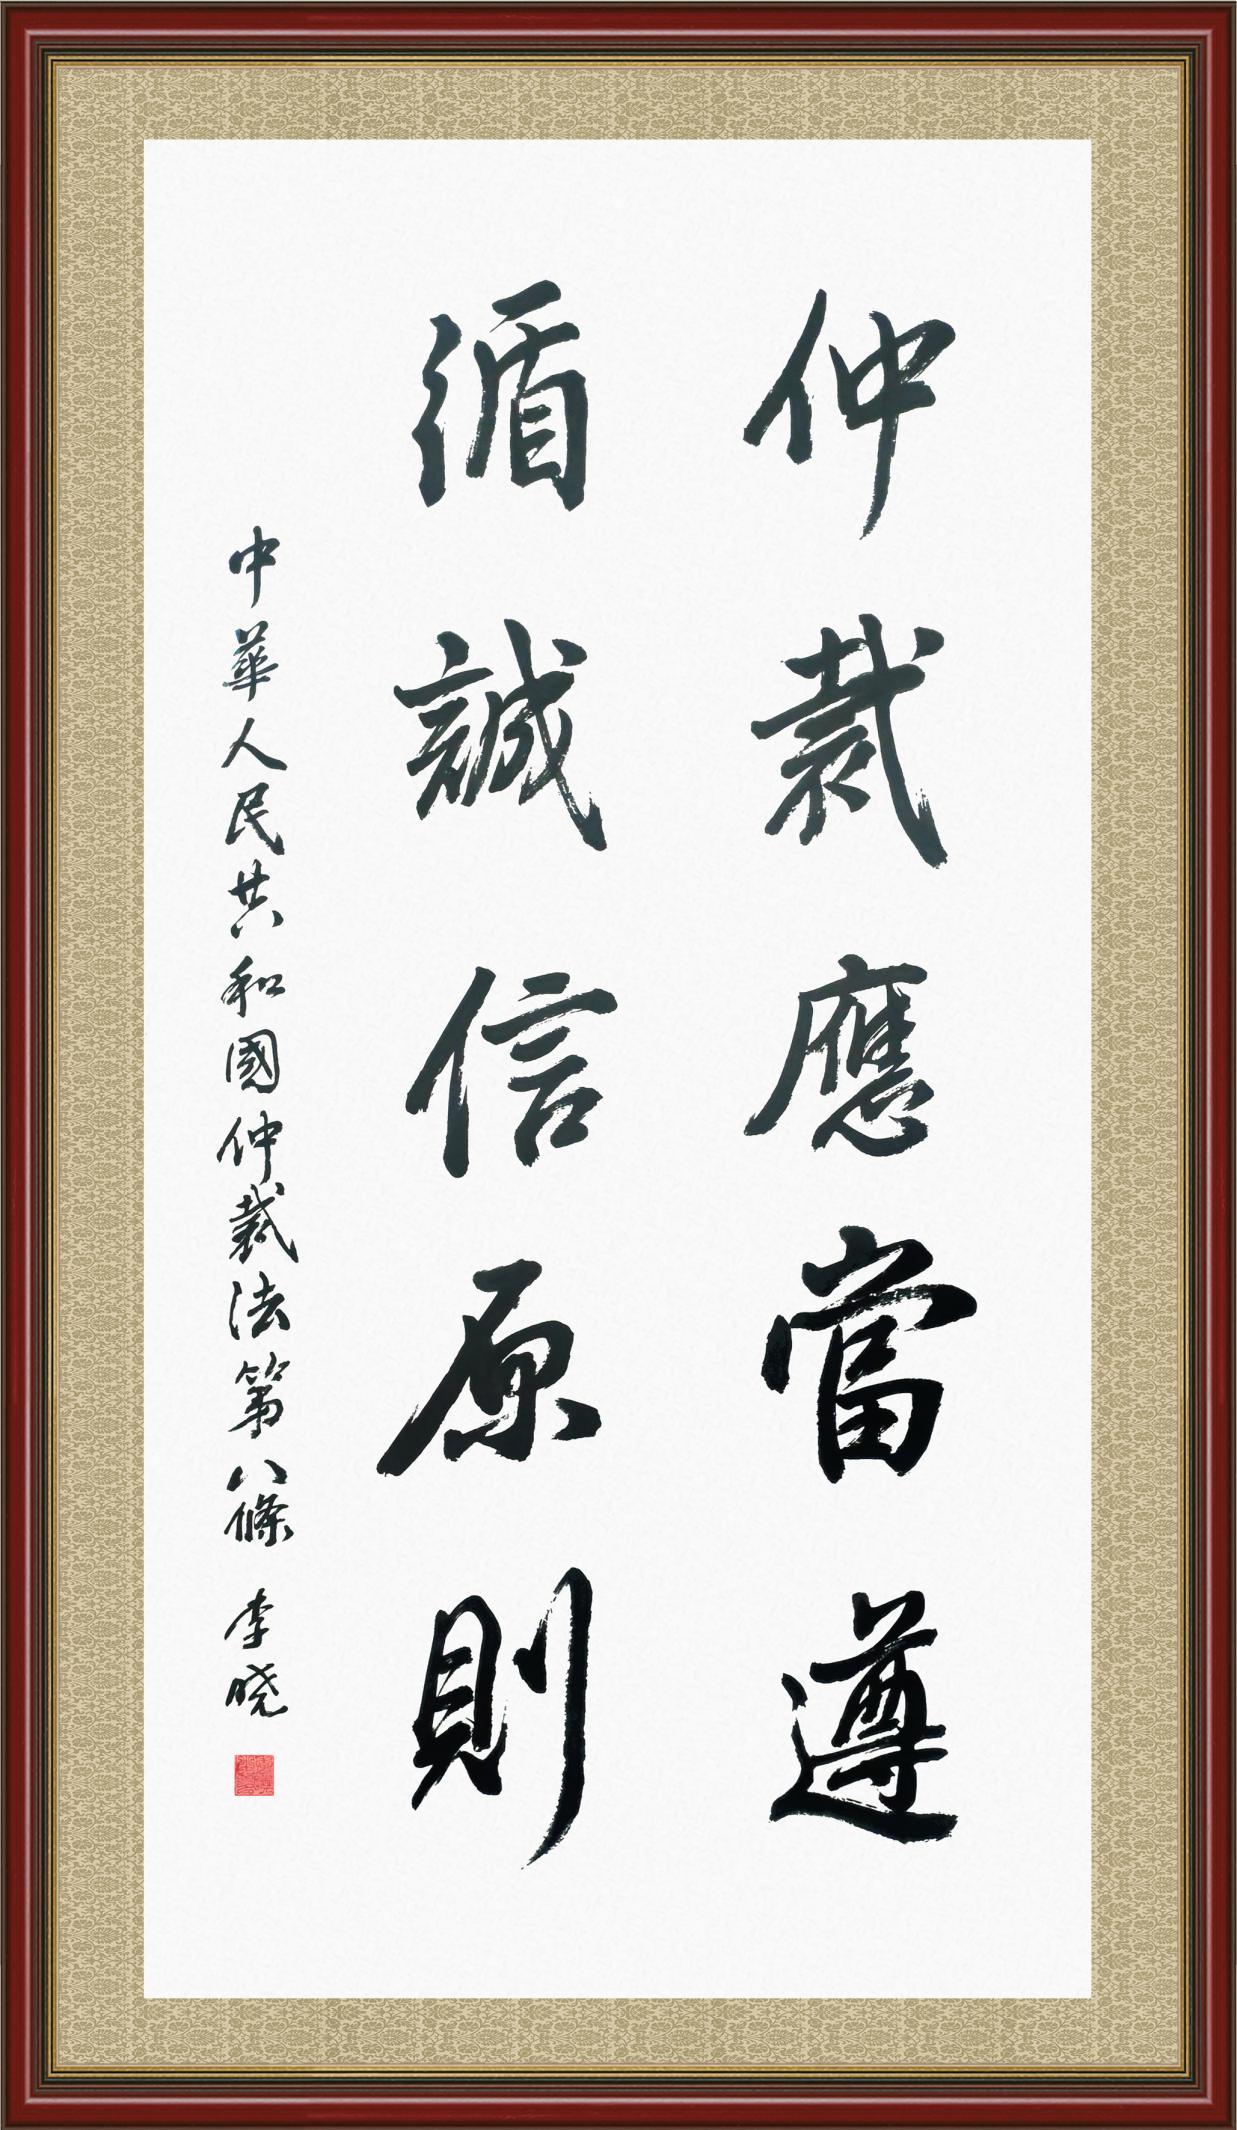 仲裁應當遵
循誠信原則
中華人民共和國仲裁法第八條 李晓